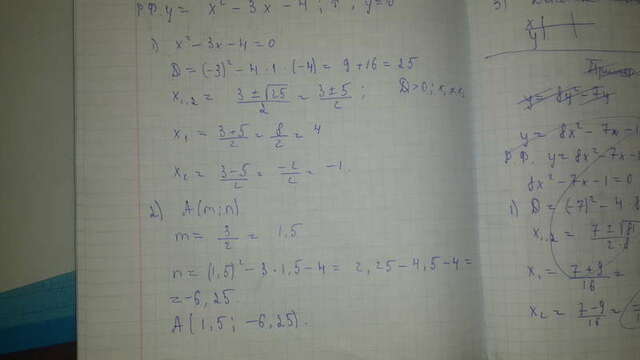 р.ф. y = x² - 3x - 4; y=0
1) x² - 3x - 4 = 0
D = (-3)² - 4 · 1 · (-4) = 9 + 16 = 25
x₁,₂ = (3 ± √25)/2 = (3 ± 5)/2 ; D > 0;
x₁ = (3+5)/2 = 8/2 = 4
x₂ = (3-5)/2 = -2/2 = -1.
2) A(m; n)
m = 3/2 = 1,5
n = (1,5)² - 3 · 1,5 - 4 = 2,25 - 4,5 - 4 =
= -6,25.
A(1,5; -6,25).
3)
x
y
y = 8x² - 7x
y = 8x² - 7x - 1
р.ф. y = 8x² - 7x -
8x² - 7x - 1 = 0
1) D = (-7)² - 4 · 8
x₁,₂ = (7 ± √81)/(2·8)
x₁ = (7+9)/16 =
x₂ = (7-9)/16 =